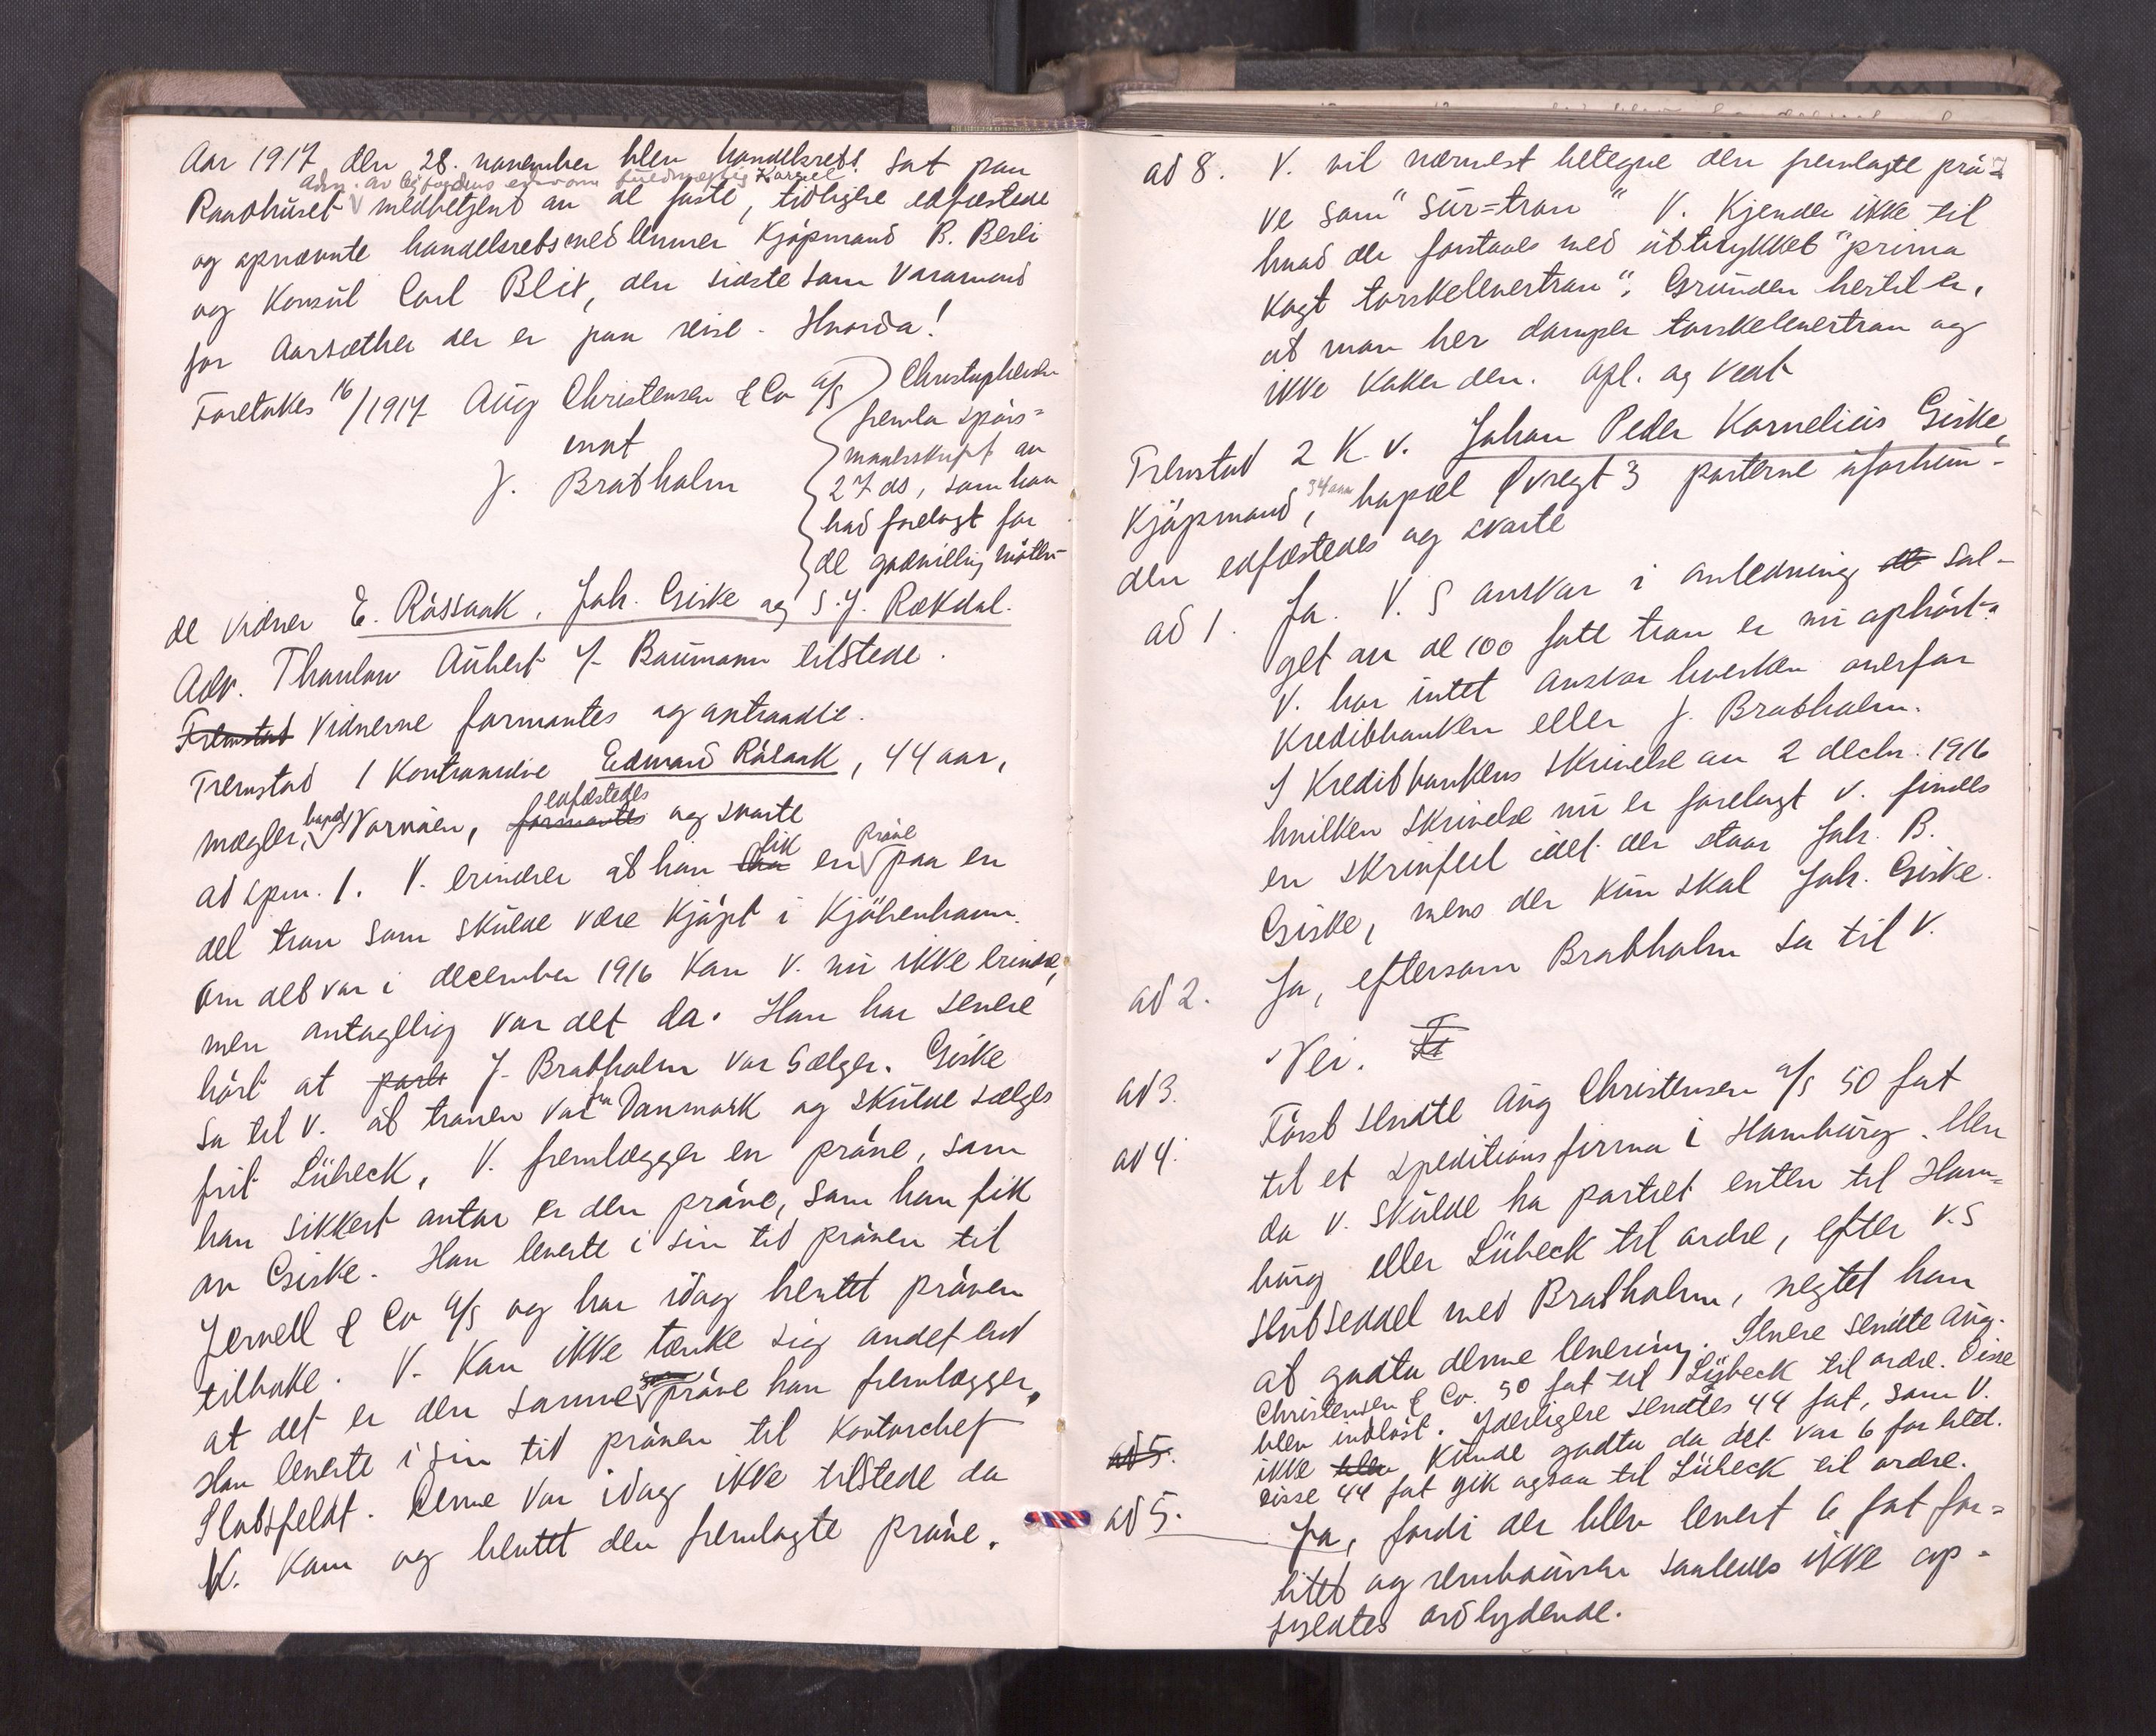 Aar 1917 den 28. november blev handelsret sat paa
adm. av byfogdens edsvorne fuldmægtig
Raadhuset medbetjent av de faste, tidligere edfæstede
og opnævnte handelsretsmedlemmer Kjøpmand B. Berli
og Konsul Carl Blix, den sidste som varamand
for Aarsæther der er paa reise. Hvorda!
Foretokes 16/1917 Aug Christensen & Co a/s
mot
J. Bratholm
Christophersen
fremla spörs=
maalsskrift av
27 ds, som han
had forelagt for
de godvillig mötten-
de vidner E. Råssaak, Joh. Giske og S. J. Rekdal.
Adv. Thaulow Aubert f. Baumann tilstede.
Fremstod Vidnerne formantes og antraadte.
Fremstod 1 Kontravidne Edvard Råsaak, 44 aar,
mægler, bopæl Volsdalen, formantes edfæstedes og svarte
ad spm. 1. V. erindrer at han fik en prøve paa en
del tran som skulde være kjöpt i Kjöbenhavn.
Om det var i december 1916 kan V. nu ikke erindre,
men antagelig var det da. Han har senere
hört at J. Bratholm var sælger. Giske
sa til V. at tranen var fra Danmark og skulde sælges
frit Lübeck. V. fremlægger en pröve, som
han sikkert antar er den pröve, som han fik
av Giske. Han leverte i sin tid pröven til
Jervell & Co a/s og har idag hentet pröven
tilbake. V. kan ikke tænke sig andet end
at det er den samme pröve han fremlægger,
Han leverte i sin tid pröven til kontorchef
Slotsfeldt. Denne var idag ikke tilstede da
V. kom og hentet den fremlagte pröve.
ad 8. V. vil nærmest betegne den fremlagte prö=
ve som "sur=tran" V. kjender ikke til
hvad der forstaaes med uttrykket "prima
kogt torskelevertran". Grunden hertil er,
at man her damper torskelevertran og
ikke koker den. Opl. og vedt
Fremstod 2 K. V. Johan Peder Kornelius Giske,
Kjöpmand, 34 aar, bopæl Øvregt 3 parterne uforhin-
den edfæstedes og svarte
ad 1. Ja. V.s ansvar i anledning sal-
get av de 100 fate tran er nu ophört.
V. har intet ansvar hverken overfor
Kreditbanken eller J. Bratholm.
I Kreditbankens skrivelse av 2 decbr. 1916
hvilken skrivelse nu er forelagt V. findes
en skrivfeil idet der staar Joh. B.
Giske, mens der kun skal Joh. Giske.
ad 2. Ja, eftersom Bratholm sa til V.
ad 3. Nei.
ad 4. Først sendte Aug Christensen a/s 50 fat
til et speditionsfirma i Hamburg. Men
da V. skulde ha partiet enten til Ham=
burg eller Lübeck til ordre, efter V.s
slutseddel med Bratholm, negtet han
at godta denne levering. Senere sendte Aug.
Christensen & Co. 50 fat til Lübeck til ordre. Disse
blev indlöst. Yderligere sendtes 44 fat, som V.
ad 5. ikke blev kunde godta da det var 6 for litet.
Disse 44 fat gik ogsaa til Lübeck til ordre.
ad 5. Ja, fordi der blev levert 6 fat for=
litet og remboursen saaledes ikke op-
fyldtes ordlydende.